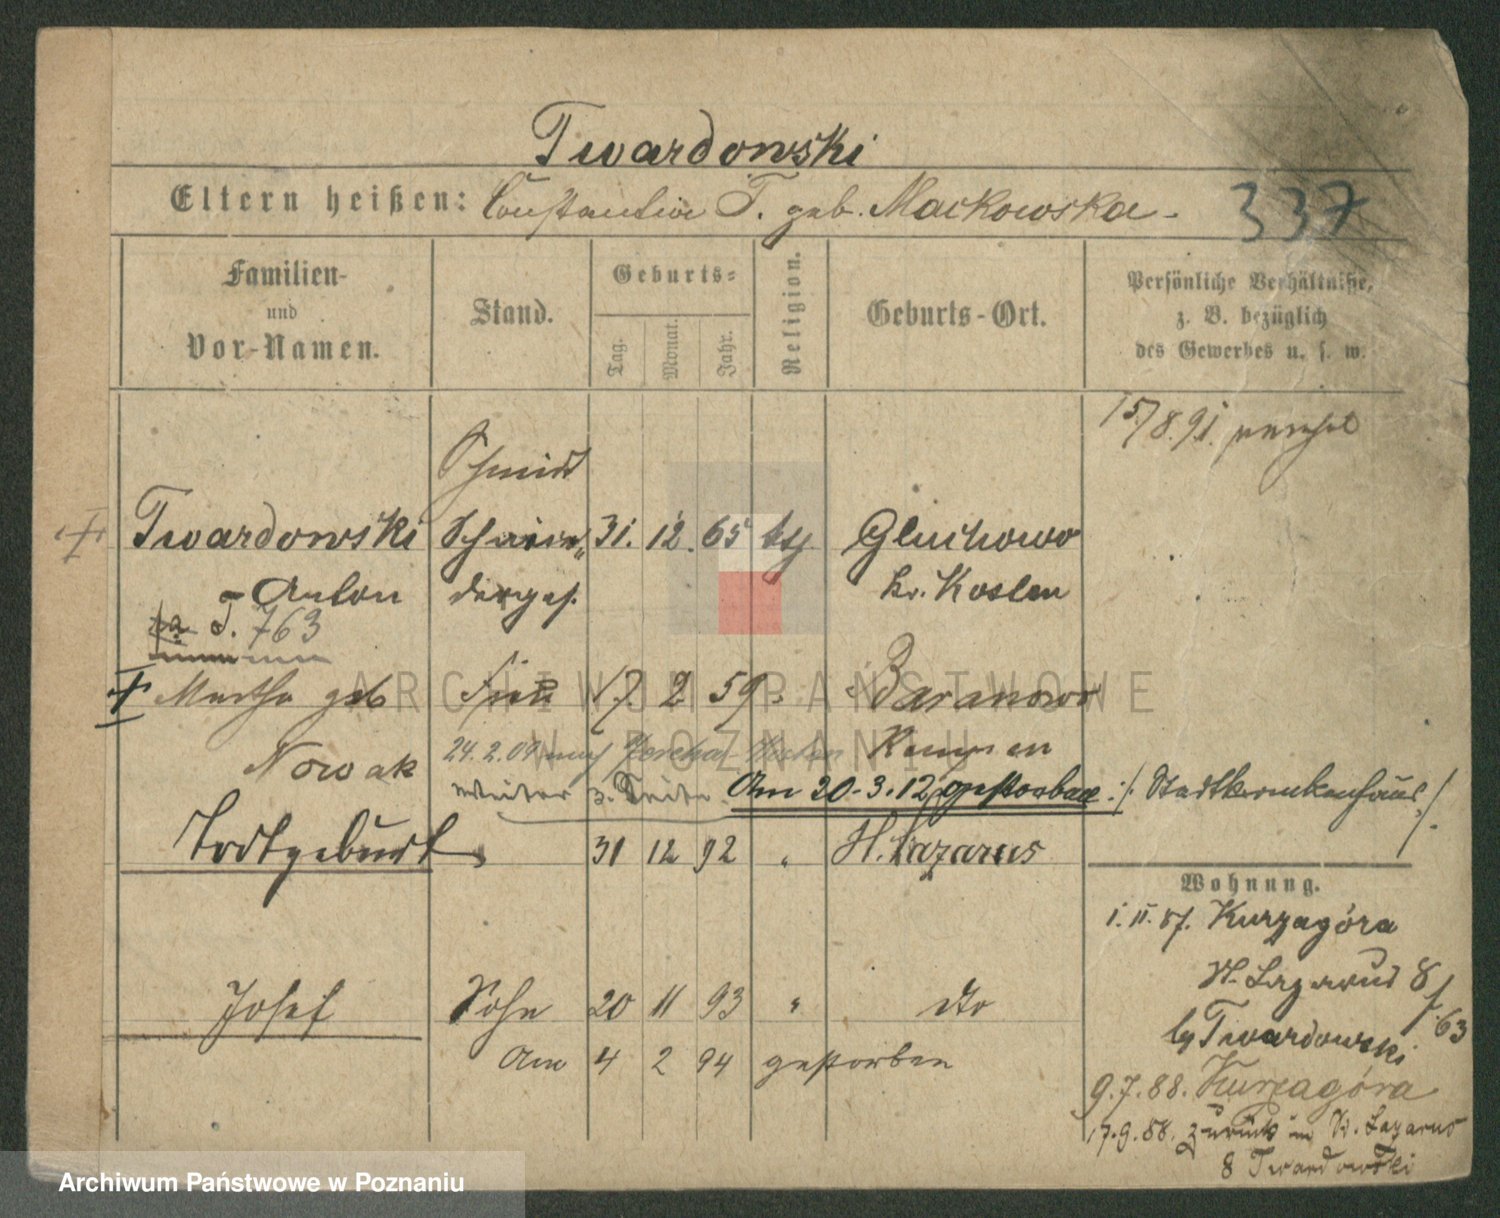 Twardowski
Eltern heißen: Constantin T. geb. Mackowska.
337
Familien-
und
Vor-Namen.
Stand.
Geburts-
Tag.
Monat.
Jahr.
Religion.
Geburts-Ort.
Persönliche Verhältniße,
z. B. bezüglich
des Gewerbes u. s. w.
15/8.91.
Schmied
Twardowski 31. 12. 65 Gluchowo
Anton Kr. Kosten
J. 763
Martha geb Frau 17. 2. 59 Baranowo
Nowak 24.2.09 Kempen
weiter s. Seite. Am 20.3.12 gestorben :/. Stadtkrankenhaus /.
Todtgeburt 31 12 92 " St. Lazarus
Wohnung.
1. II. 87. Kurzagóra
St. Lazarus 8/63
by Twardowski
Josef Sohn 20 11 93 " dto
Am 4 2 94 gestorben
9.7.88. Kurzagóra
17.9.88. zurück in St. Lazarus
8 Twardowski
ARCHIWUM PAŃSTWOWE
W POZNANIU
Archiwum Państwowe w Poznaniu